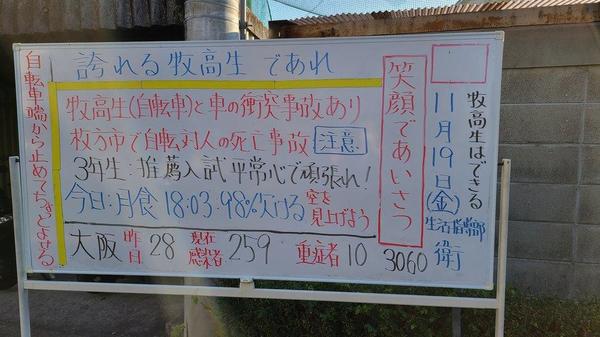 誇れる牧高生であれ
牧高生はできる
11月19日(金)
生活指導部
衛
笑顔であいさつ
3060
牧高生(自転車)と車の衝突事故あり
枚方市で自転対人の死亡事故 注意
3年生:推薦入試平常心で頑張れ!
今日:月食18:03.98%欠ける 空を見上げよう
大阪 昨日28 現在感染者259 重症者10
自転車端から止めてちょっとよせる